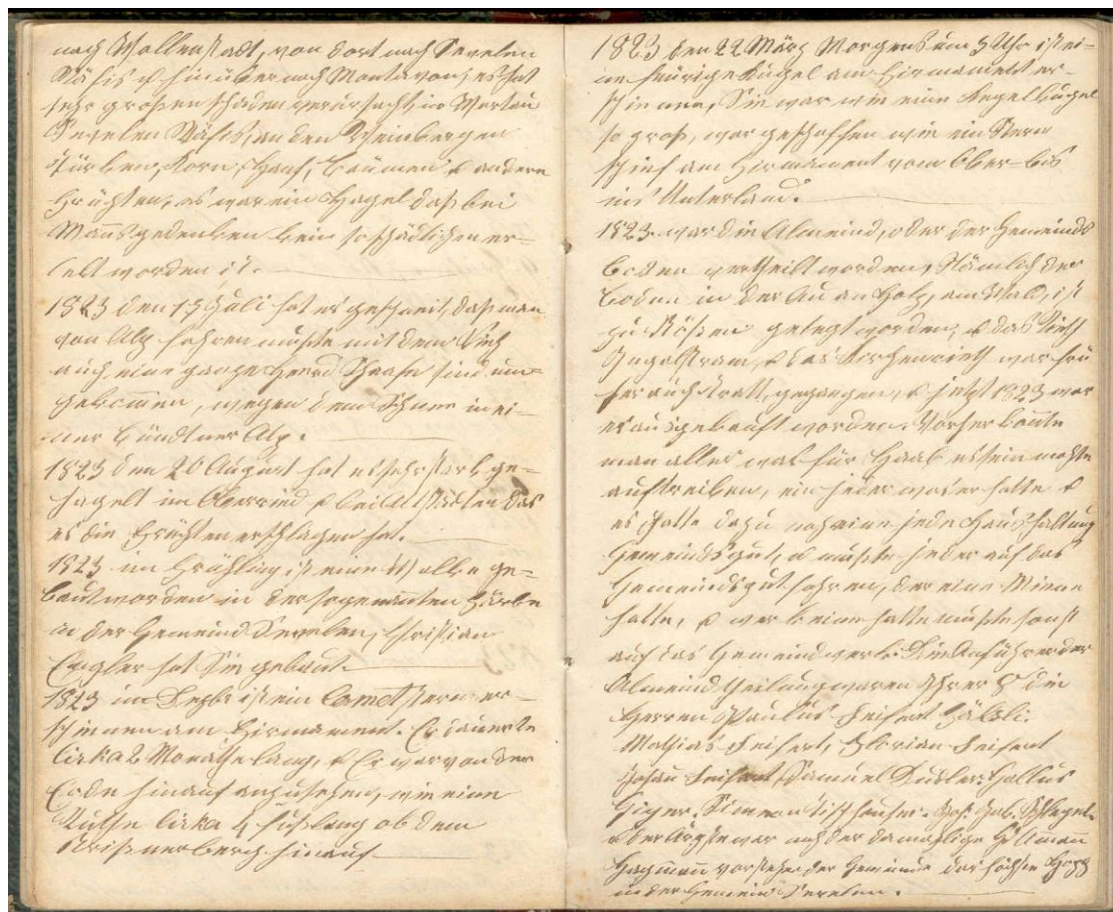 nach Wallenstadt, von dort nach Sevelen
Räfis & hinüber nach Montavon, es hat
sehr großen schaden verursacht, in Wartau
Sevelen Räfis, an den Weinbergen
Türken, Korn, Hanf, Bäumen & andern
Früchten, es war ein Hagel daß bei
Mañsgedenken kein so schädlichen er-
lebt worden ist.
1823 den 15 Juli hat es geschneit, daß man
von Alp fahren mußte mit dem Vieh
auch eine ganze Heerd Schaafe sind um-
gekomen, wegen dem Schnee in ei-
ner Bündtner Alp.
1823 den 20 August hat es sehr stark ge-
hagelt im Oberried & bei Altstätten das
es die Früchten erschlagen hat.
1823 im Frühling ist eine Walke ge-
baut worden in der sogenañten Färbe
in der Gemeind Sevelen, Christian
Engler hat Sie gebaut.
1823 im Dezbr ist ein Comet stern er-
schienen am Firmament. Er dauerte
Cirka 2 Monathe lang, & Er war von der
Erde hinauf anzusehen, wie eine
Ruthe Cirka 4 fuß lang ob dem
berg hinauf
1823 den 22 März Morgens um 5 Uhr ist ei-
ne feurige Kugel am Firmament er-
schienen, Sie war wie eine Kegelkugel
so groß, war geschaffen wie ein Stern
schief am Firmament vom Ober- bis
ins Unterland.
1823 war die Almeind, oder der Gemeinds
boden vertheilt worden, Nämlich der
boden in der Au an Holz, am Wald, ist
zu gelegt worden, & das Rieth
& das Kirchenrieth war frü
her auch gegangen, & jetzt 1823 war
es ausgekauft worden. Vorher koñte
man alles was für Haab es sein mochte
auftreiben, ein jeder was er hatte &
es hatte dazu noch eine jede Haushaltung
Gemeindsgut, & mußte jeder auf das
Gemeindsgut fahren, der eine Miene
hatte, & wer keine hatte mußte sonst
auf das Gemeindwerk. Die Anführer der
Almeind theilung waren Ihrer 8 die
Herren Paulus Seifert Hälsli.
Mathias Seifert, Florian Seifert
Johañ Seifert, Samuel Gallus
Giger. Simeon Tischhauser. Joh. Jak. Schlegel.
& der Ärgste war noch der damahlige Hl Amañ
Hagmañ vorsteher der Gemeinde der höchste
in der Gemein Sevelen.